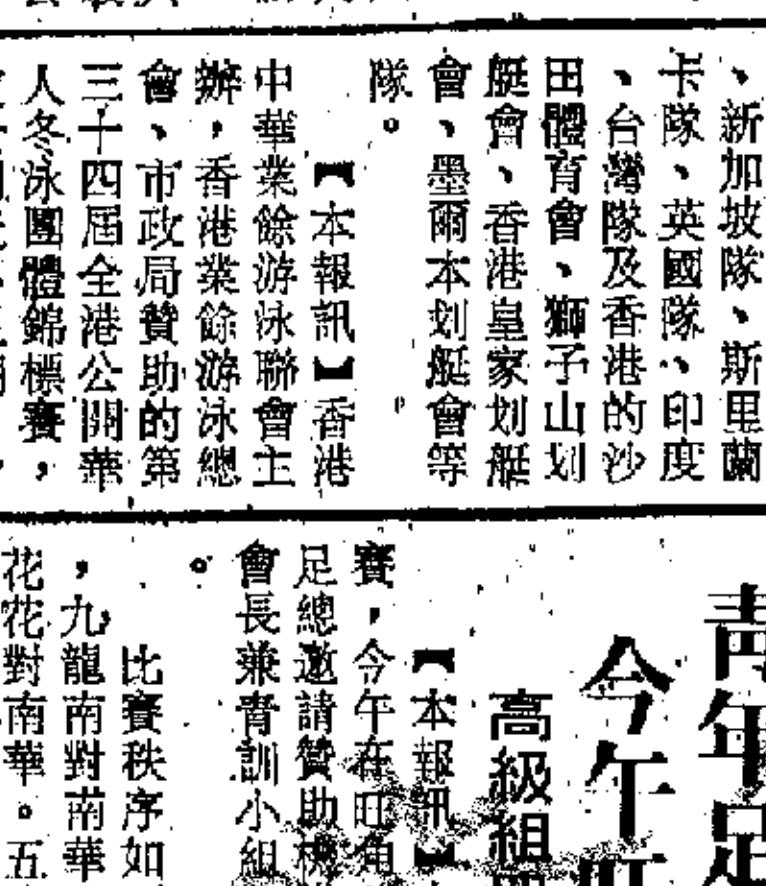 、新加坡隊、斯里蘭
卡隊、英國隊、印度
、台灣隊及香港的沙
田體育會、獅子山划
艇會、香港皇家划艇
會、墨爾本划艇會等
隊。
【本報訊】香港
中華業餘游泳聯會主
辦,香港業餘游泳總
會、市政局贊助的第
三十四屆全港公開華
人冬泳團體錦標賽,
青年足
今午旺
高級組
【本報訊】
賽,今午在旺角
足總邀請贊助機
會長兼青訓小組
。
比賽秩序如
,九龍南對南華
花花對南華。五